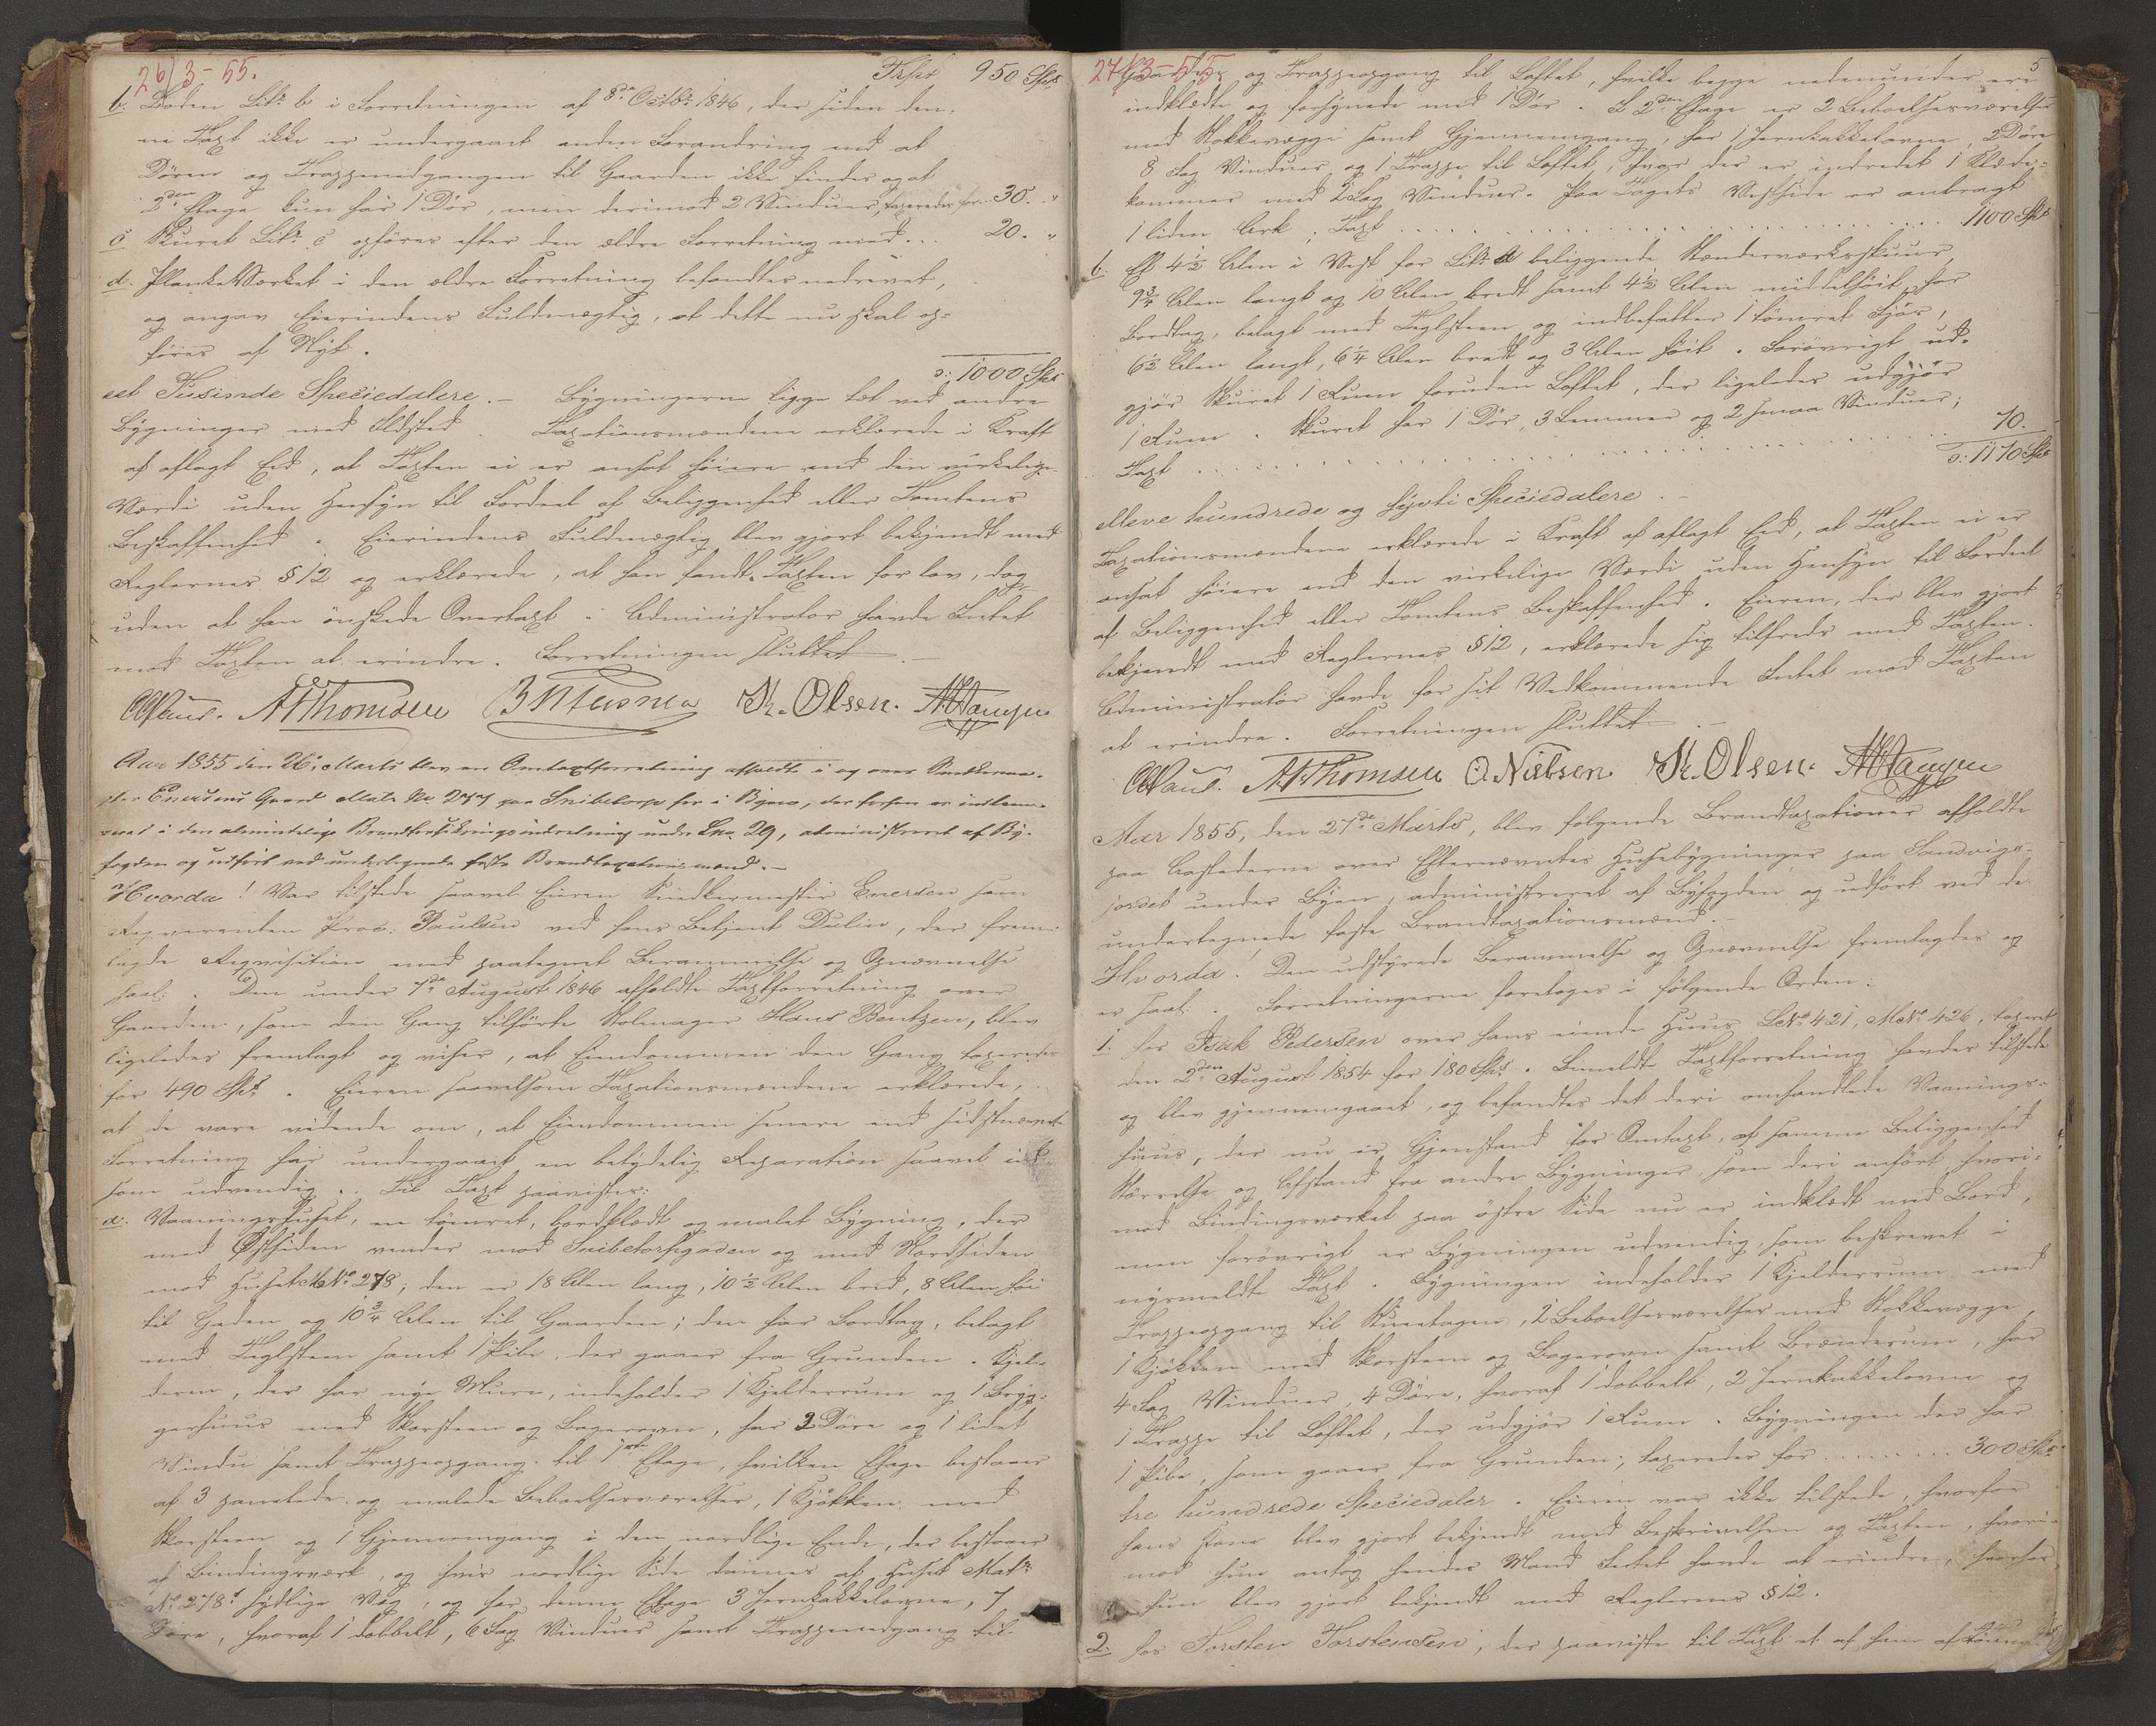 26/3-55.
Trspt 950 Spd
b. Boden Litr. b i Forretningen af 8de Octbr. 1846, der siden den-
ne Taxt ikke er undergaaet anden Forandring end at
Døren og Trappenedgangen til Gaarden ikke findes og at
2den Etage kun har 1 Dør, men derimod 2 Vinduer, taxeredes for .. 30. "
c Skuret Litr. c opføres efter den ældre Forretning med ... 20. "
d. PlankeVærket i den ældre Forretning befandtes nedrevet,
og angav Eierindens Fuldmægtig, at dette nu skal op-
føres af Nyt.
ɔ: 1000 Spd
eet Tusinde Speciedalere. – Bygningerne ligge tæt ved andre
Bygninger med Ildsted. Taxationsmændene erklærede i Kraft
af aflagt Eed, at Taxten ei er ansat høiere end den virkelige
Værdi uden Hensyn til Fordeel af Beliggenhed eller Tomtens
Beskaffenhed. Eierindens Fuldmægtig blev gjort bekjendt med
Reglernes § 12 og erklærede, at han fandt Taxten for lav, dog
uden at han ønskede Overtaxt. Administrator havde Intet
mod Taxten at erindre. Forretningen sluttet.
A Thomsen K. Olsen.
Aar 1855 den 26. Marts blev en Omtaxtforretning afholdt i og over Snedkerme-
ster Enersens Gaard Matr No 277 paa Snibetorp her i Byen, der forhen er indlem-
met i den almindelige Brandforsikringsindretning under Lno. 29, administreret af By-
fogden og udført ved undertegnede faste Brandtaxationsmænd. –
Hvorda! Var tilstede saavel Eieren Snedkermester Enersen som
Reqverenten Proc: Paulsen ved hans Betjent Dulin, der frem-
lagde Reqvisition med paategnet Berammelse og Opnævnelse
saal: . Den under 7de August 1846 afholdte Taxtforretning over
Gaarden, som den Gang tilhørte Stolmager Hans Bentzen, blev
ligeledes fremlagt og viser at Eiendommen den Gang taxeredes
for 490 Spd. Eieren saavelsom Taxationsmændene erklærede,
at de vare vidende om, at Eiendommen senere end sidstnævnte
Forretning har undergaaet en betydelig Reparation saavel ind-
som udvendig. Til Taxt paavistes:
a. Vaaningshuset, en tømret, bordklædt og malet Bygning, der
med Østsiden vender mod Snibetorpgaden og med Nordsiden
mod Huset MNo. 278; den er 18 Alen lang, 10½ Alen bred, 8 Alen høi
til Gaden og 10¾ Alen til Gaarden; den har Bordtag, belagt
med Teglsteen samt 1 Pibe, der gaaer fra Grunden. Kjel-
deren, der har nye Mure, indeholder 1 Kjelderrum og 1 Bryg-
gerhuus med Skorsteen og Bagerovn, har 2 Døre og 1 lidet
Vindu samt Trappeopgang til 1ste Etage, hvilken Etage bestaaer
af 3 panelede og malede Beboelsesværelser, 1 Kjøkken med
Skorsteen og 1 Gjennemgang i den nordlige Ende, der bestaaer
af Bindingsværk, og hvis nordlige Side dannes af Huset Matr.
No. 278s sydlige Væg, og har denne Etage 3 Jernkakkelovne, 7
Døre, hvoraf 1 dobbelt, 6 Fag Vinduer samt Trappenedgang til
27/3-55.
5
Gaarden og Trappeopgang til Loftet, hvilke begge nedenunder ere
indklædte og forsynede med 1 Dør. I 2den Etage er 2 Beboelsesværelser
med Stokkevægge samt Gjennemgang, har 1 Jernkakkelovne, 2 Døre
8 Fag Vinduer og 1 Trappe til Loftet, hvor der er indredet 1 Klæde-
kammer med 2 Fag Vinduer. Paa Tagets Vestside er anbragt
1 liden Ark; Taxt ..... 1100 Spd
b. Et 4½ Alen i Vest for Litr. a beliggende Stænderværksskuur,
9¾ Alen langt og 10 Alen bredt samt 4½ Alen middelhøit, har
Bordtag, belagt med Teglsteen og indbefatter 1 tømret Fjøs,
6½ Alen langt, 6¼ Alen bredt og 3 Alen høit. Forøvrigt ud-
gjør Skuret 1 Rum foruden Loftet, der ligeledes udgjør
1 Rum. Skuret har 1 Dør, 3 Lemmer og 2 smaa Vinduer;
Taxt ..... 70.
ɔ: 1170 Spd
elleve hundrede og syvti Speciedalere. –
Taxationsmændene erklærede i Kraft af aflagt Eed, at Taxten ei er
ansat høiere end den virkelige Værdi uden Hensyn til Fordeel
af Beliggenhed eller Tomtens Beskaffenhed. Eieren, der blev gjort
bekjendt med Reglernes § 12, erklærede sig tilfreds med Taxten.
Administrator havde for sit Vedkommende Intet mod Taxten
at erindre. Forretningen sluttet. –
A Thomsen O Nielsen. K. Olsen.
Aar 1855, den 27de Marts, blev følgende Brandtaxationer afholdte
paa Aastederne over Efternævntes Husebygninger paa Sandvigs-
jordet under Byen, administreret af Byfogden og udført ved de
undertegnede faste Brandtaxationsmænd. –
Hvorda! Den udstyrede Berammelse og Opnævnelse fremlagdes og
er saal: . Forretningerne foretoges i følgende Orden:
1. hos Isak Pedersen over hans eiende Huus LNo. 421, MNo. 426, taxeret
den 2den August 1854 for 180 Spd. Bemeldte Taxtforretning havdes tilstede
og blev gjennemgaaet, og befandtes det deri omhandlede Vaanings-
huus, der nu er Gjenstand for Omtaxt, af samme Beliggenhed
Størrelse og Afstand fra andre Bygninger, som deri anført, hvori-
mod Bindingsværket paa østre Side nu er indklædt med Bord,
men forøvrigt er Bygningen udvendig, som beskrevet i
nysmeldte Taxt. Bygningen indeholder 1 Kjelderrum med
Trappeopgang til Stueetagen, 2 Beboelsesværelser med Stokkevægge,
1 Kjøkken med Skorsteen og Bagerovn samt Brænderum, har
4 Fag Vinduer, 4 Døre, hvoraf 1 dobbelt, 2 Jernkakkelovne og
1 Trappe til Loftet, der udgjør 1 Rum. Bygningen der har
1 Pibe, som gaaer fra Grunden, taxeredes for ..... 300 Spd.
tre hundrede Speciedaler. Eieren var ikke tilstede, hvorfor
hans Kone blev gjort bekjendt med Beskrivelsen og Taxten, hvori-
mod hun antog hendes Mand Intet havde at erindre,
hun blev gjort bekjendt med Reglernes § 12.
2. hos Torsten Torstensen, der paaviste til Taxt et af ham af